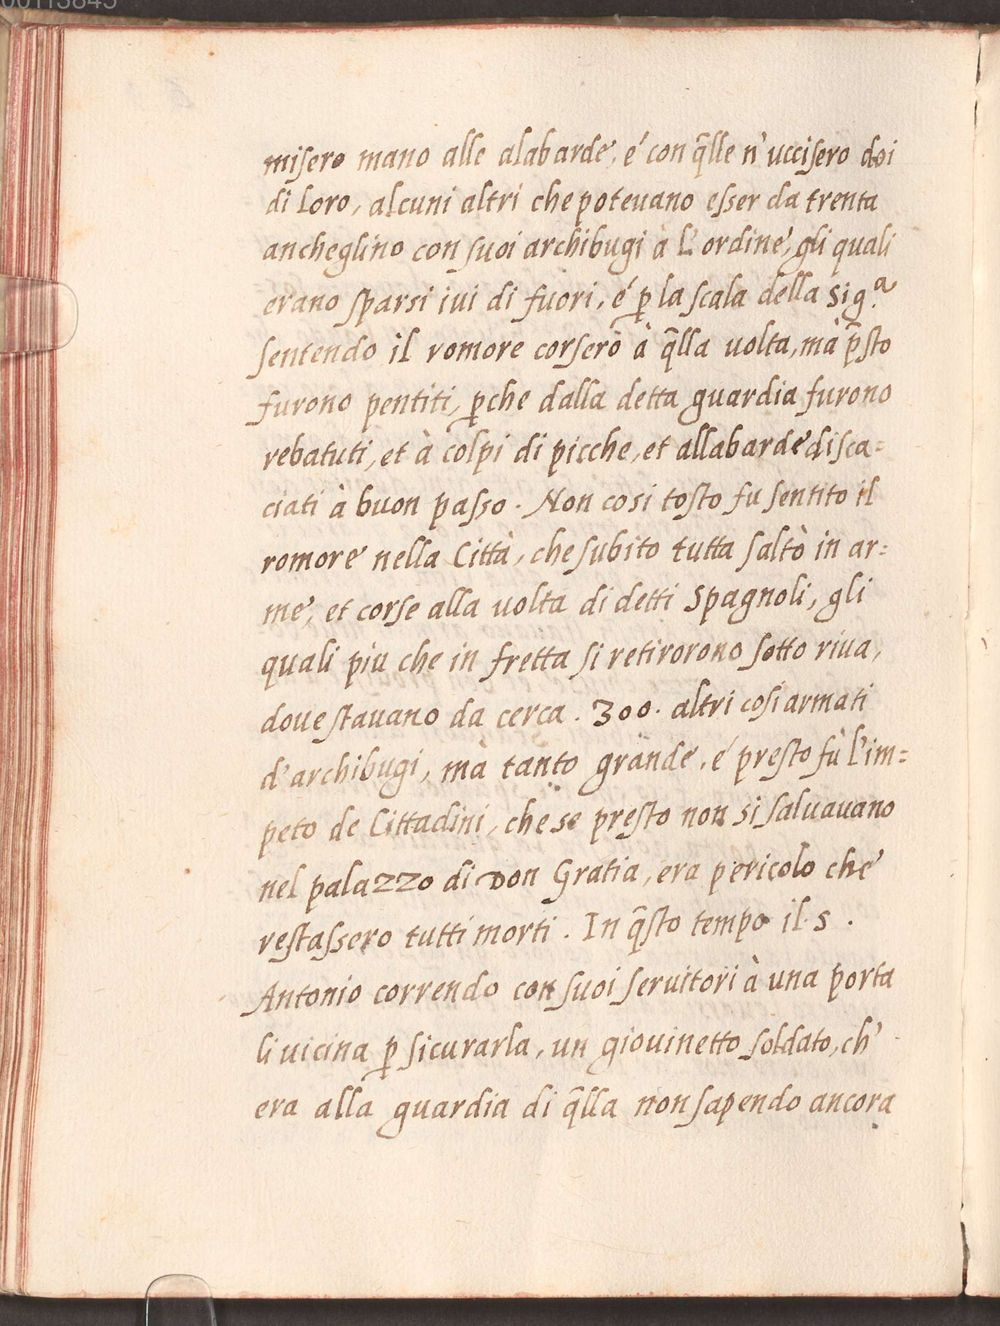 misero mano alle alabarde, é con q̃lle n'uccisero doi
di Loro, alcuni altri che poteuano esser da trenta
anch'eglino con suoi archibugi à L'ordine, gli quali
erano sparsi iui di fuori, é ꝑ la scala della Sig.ª
sentendo il romore corserõ à q̃lla uolta, mà p̃sto
furono pentiti, ꝑche dalla detta guardia furono
rebatuti, et à colpi di picche, et allabarde disca=
ciati à buon passo. Non cosi tosto fu sentito il
romore nella Città, che subito tutta saltò in ar=
me, et corse alla uolta di detti Spagnoli, gli
quali piu che in fretta si retirorono sotto riua,
doue stauano da cerca. 300. altri cosi armati
d'archibugi, mà tanto grande, é presto fù l'im=
peto de Cittadini, che se presto non si saluauano
nel palazzo di Don Gratia, era pericolo che
restassero tutti morti. In q̃sto tempo il S.
Antonio correndo con suoi seruitori à una porta
li uicina ꝑ sicurarla, un giouinetto soldato, ch'
era alla guardia di q̃lla non sapendo ancora